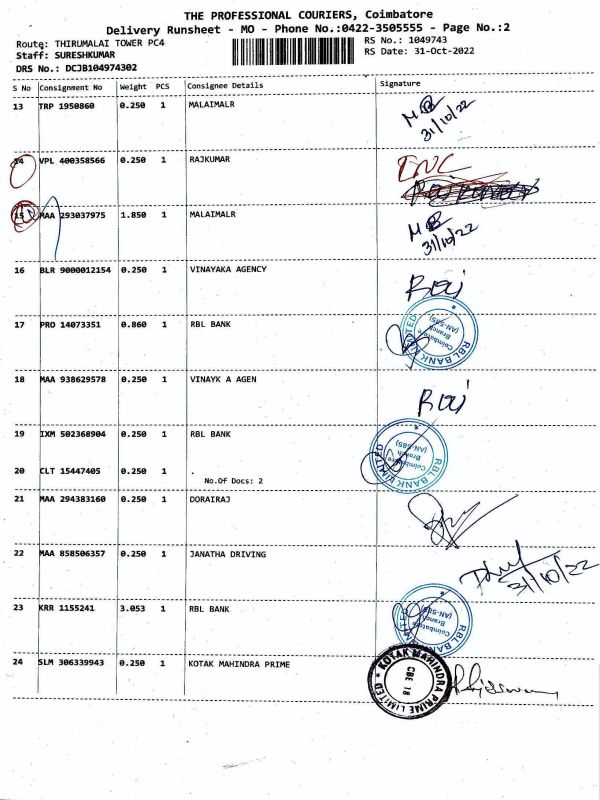 THE PROFESSIONAL COURIERS, Coimbatore
Delivery Runsheet - MO - Phone No.:0422-3505555 - Page No.:2
Route: THIRUMALAI TOWER PC4
RS No.: 1049743
Staff: SURESHKUMAR
RS Date: 31-Oct-2022
DRS No.: DCJB104974302
S No Consignment No Weight PCS Consignee Details Signature
13 TRP 1950860 0.250 1 MALAIMALR
31/10/22
14 VPL 400358566 0.250 1 RAJKUMAR
15 MAA 293037975 1.850 1 MALAIMALR
31/10/22
16 BLR 9000012154 0.250 1 VINAYAKA AGENCY
17 PRO 14073351 0.860 1 RBL BANK
RBL BANK LIMITED
Coimbatore
Branch
(AN-585)
18 MAA 938629578 0.250 1 VINAYK A AGEN
19 IXM 502368904 0.250 1 RBL BANK
RBL BANK LIMITED
Coimbatore
Branch
(AN-585)
20 CLT 15447405 0.250 1 .
No.Of Docs: 2
21 MAA 294383160 0.250 1 DORAIRAJ
22 MAA 858506357 0.250 1 JANATHA DRIVING
31/10/22
23 KRR 1155241 3.053 1 RBL BANK
RBL BANK LIMITED
Coimbatore
Branch
(AN-585)
24 SLM 306339943 0.250 1 KOTAK MAHINDRA PRIME
KOTAK MAHINDRA PRIME LIMITED
CBE 18